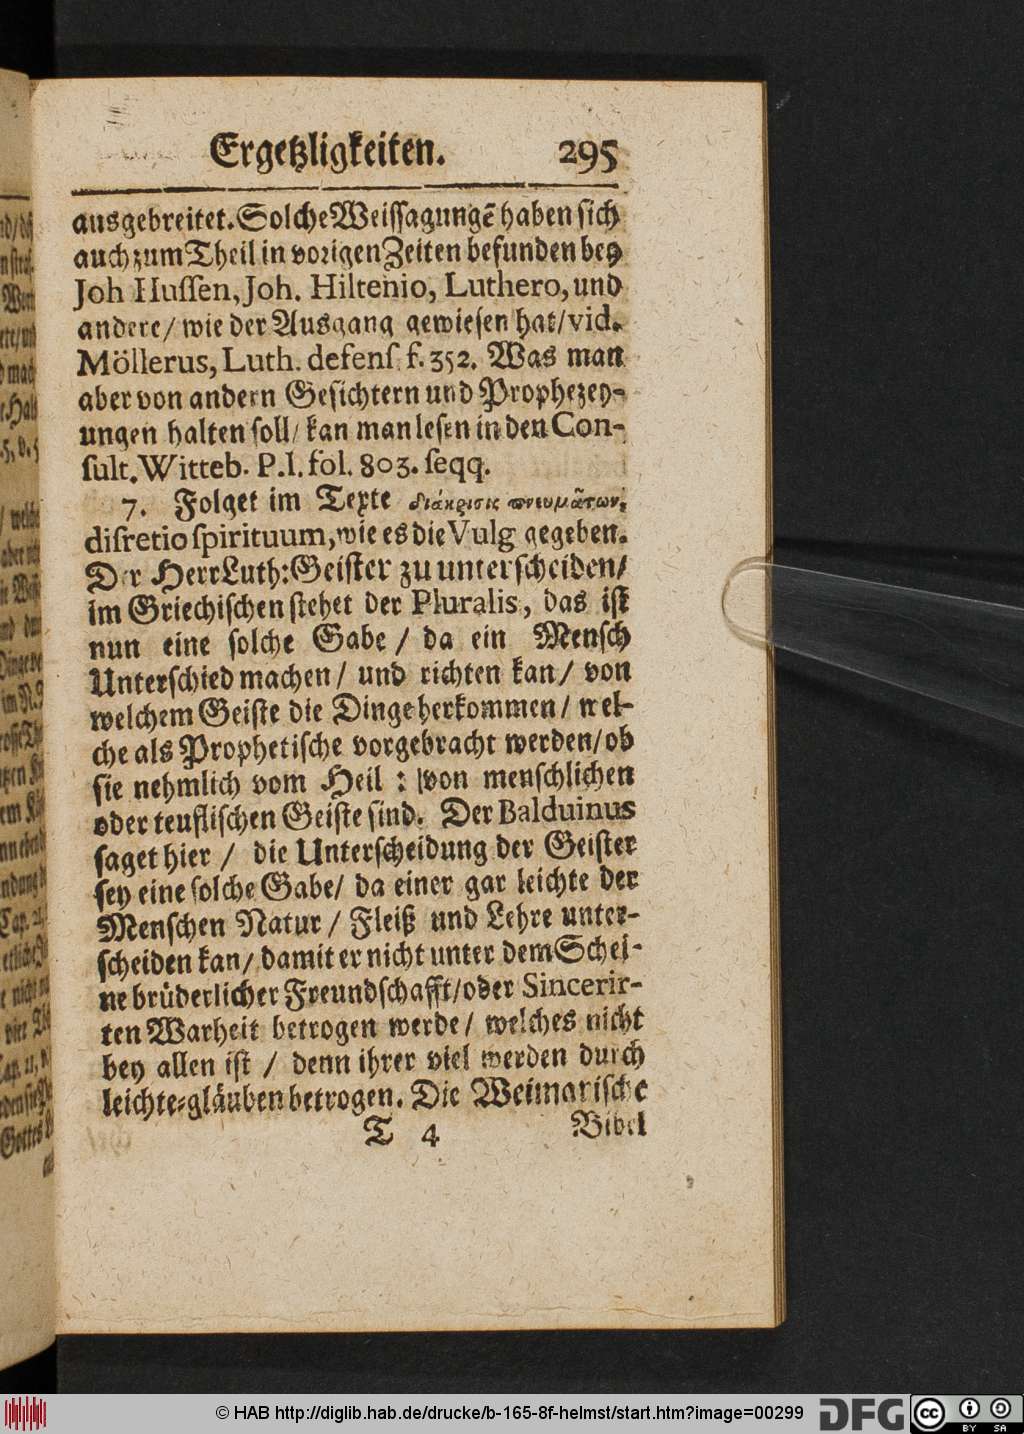 Ergetzligkeiten. 295
ausgebreitet. Solche Weissagungē haben sich
auch zum Theil in vorigen Zeiten befunden bey
Joh Hussen, Joh. Hiltenio, Luthero, und
andere / wie der Ausgang gewiesen hat / vid.
Möllerus, Luth. defens f. 352. Was man
aber von andern Gesichtern und Prophezey-
ungen halten soll / kan man lesen in den Con-
sult. Witteb. P. I. fol. 803. seqq.
7. Folget im Texte διάκρισις πνευμάτων,
disretio spirituum, wie es die Vulg gegeben.
Der Herr Luth: Geister zu unterscheiden /
im Griechischen stehet der Pluralis, das ist
nun eine solche Gabe / da ein Mensch
Unterschied machen / und richten kan / von
welchem Geiste die Dinge herkommen / wel-
che als Prophetische vorgebracht werden / ob
sie nehmlich vom Heil : von menschlichen
oder teuflischen Geiste sind. Der Balduinus
saget hier / die Unterscheidung der Geister
sey eine solche Gabe / da einer gar leichte der
Menschen Natur / Fleiß und Lehre unter-
scheiden kan / damit er nicht unter dem Schei-
ne brüderlicher Freundschafft / oder Sincerir-
ten Warheit betrogen werde / welches nicht
bey allen ist / denn ihrer viel werden durch
leichte-gläuben betrogen. Die Weimarische
T 4 Bibel
© HAB http://diglib.hab.de/drucke/b-165-8f-helmst/start.htm?image=00299 DFG cc BY SA